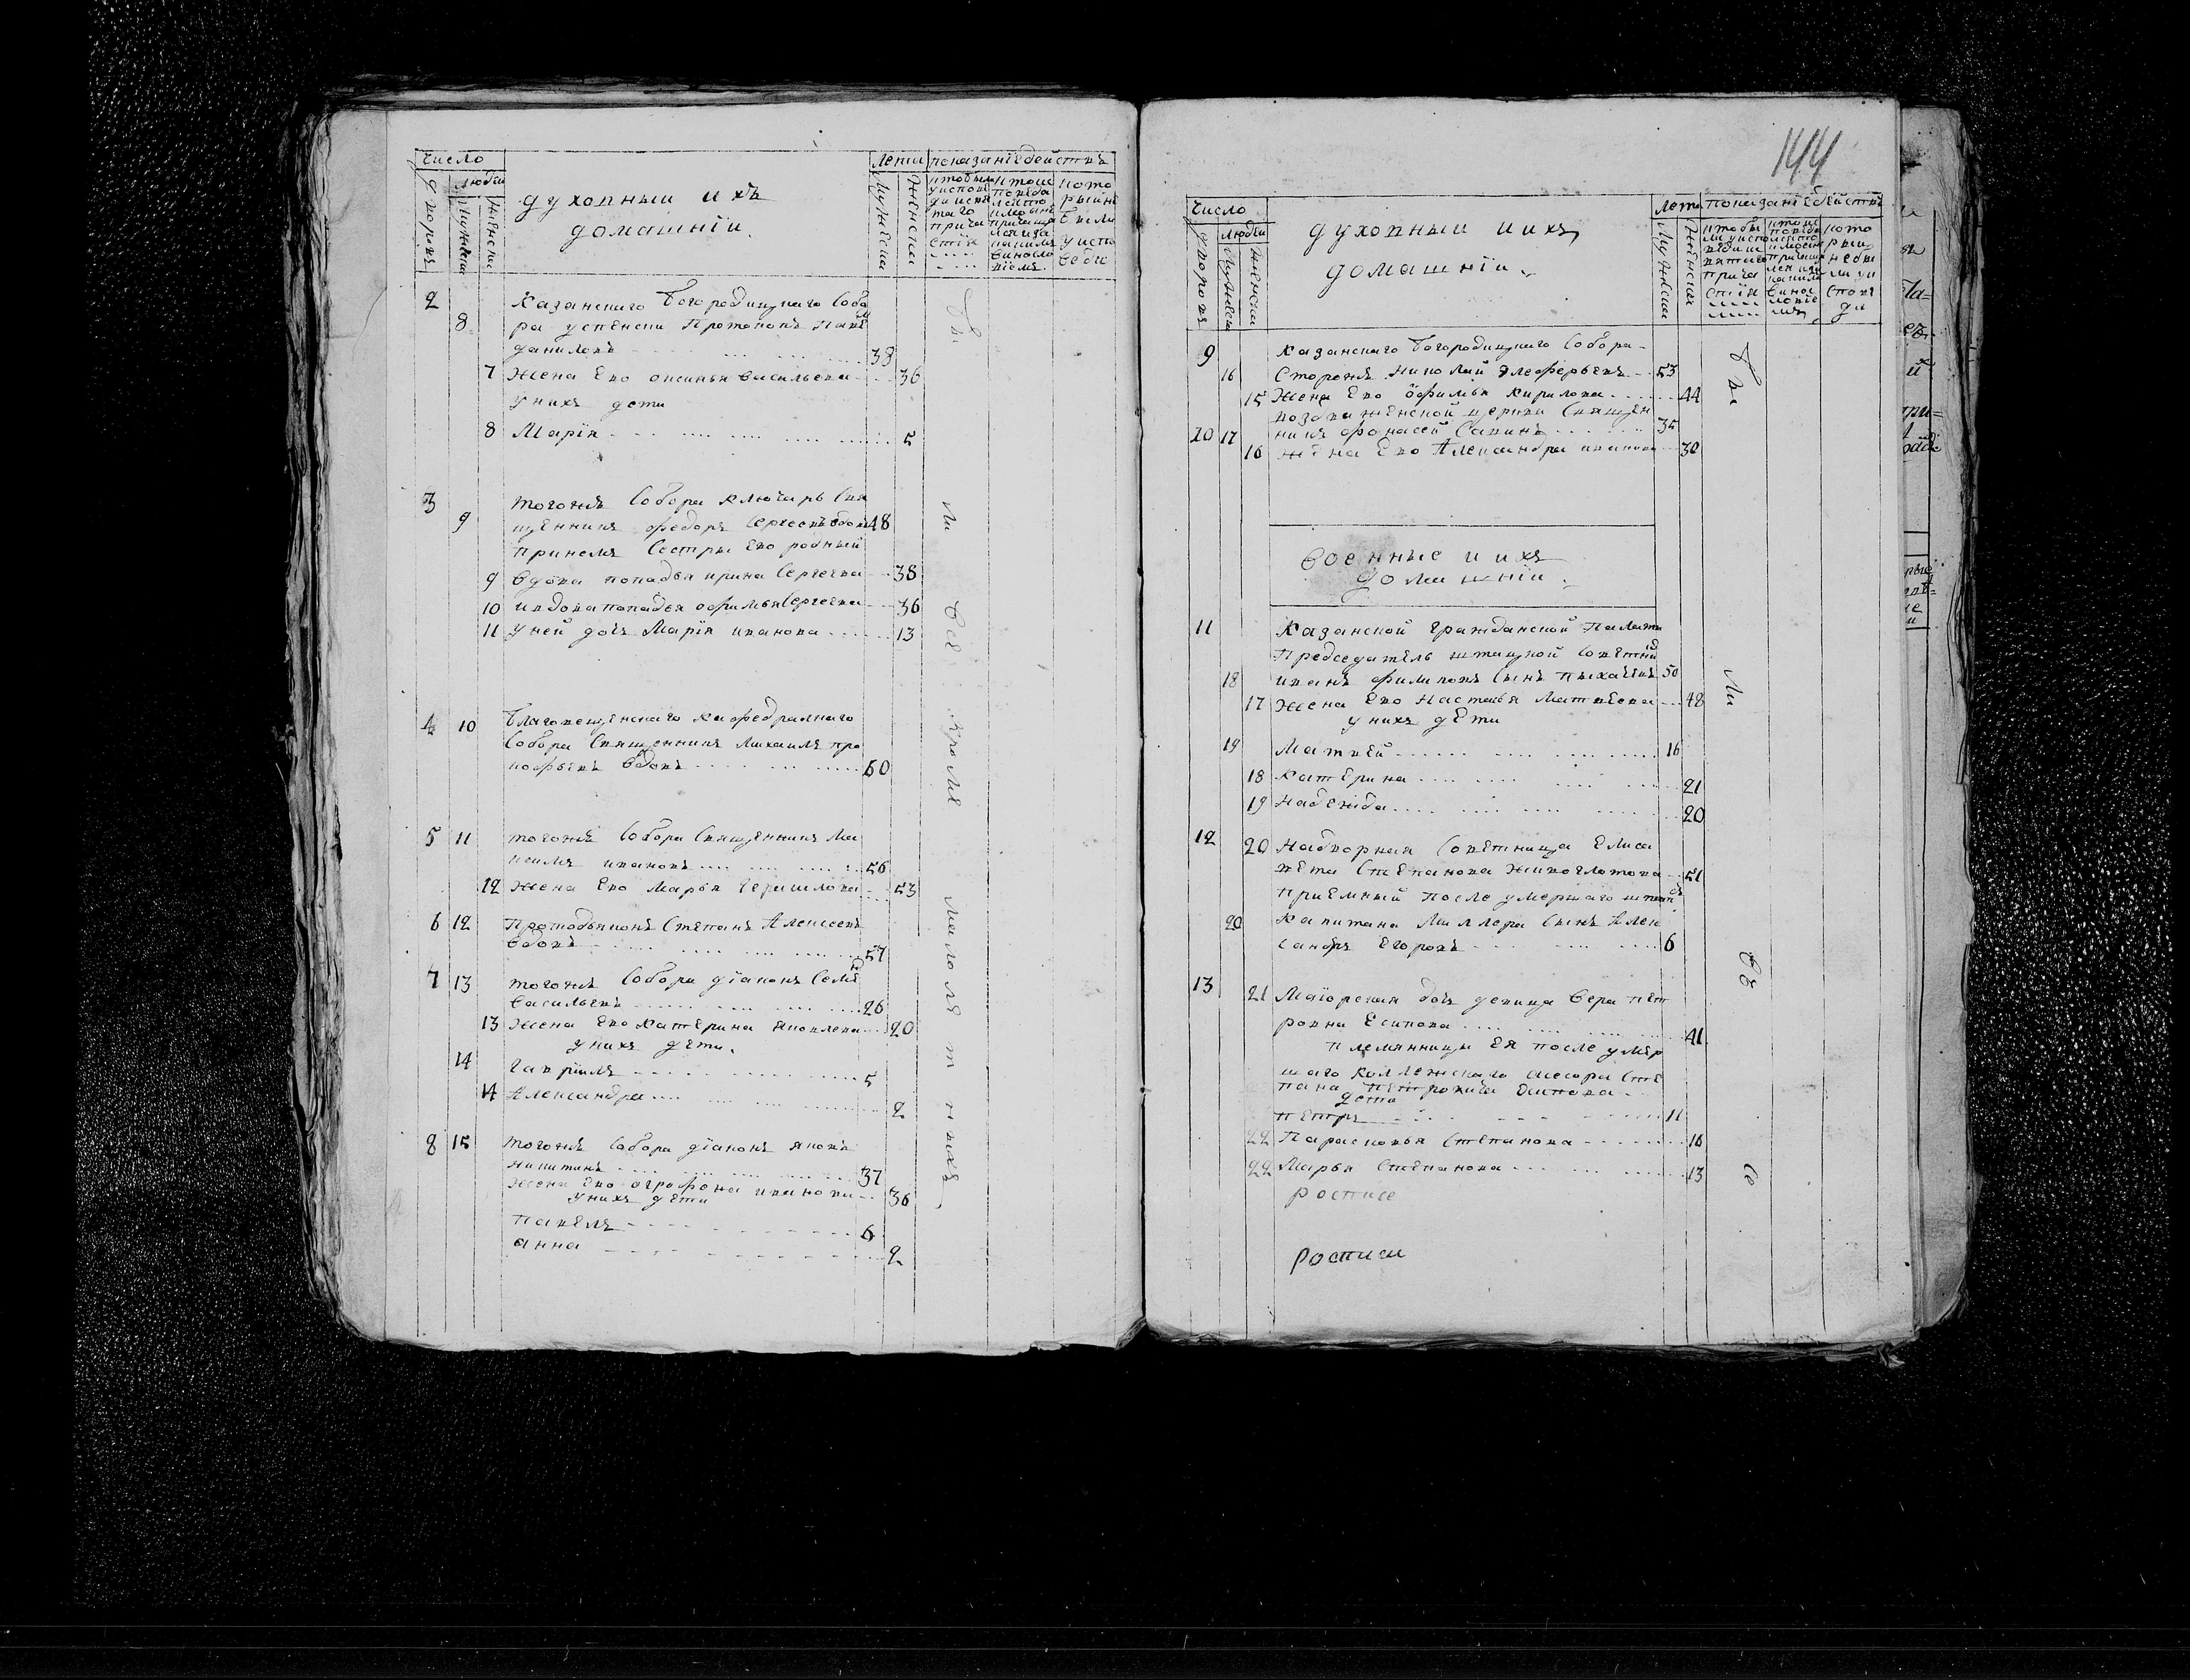 число
людей
дворовъ
мужеска
женска
духовныи ихъ
домашнїи
Лета
мужеска
женска
показанїе действъ
2
8
Казанскаго Богородицкаго Собо
ра успенски Протопопъ Паве
даниловъ 38
7 Жена Ево оксинья васильева 36
у нихъ дети
8 Марїя 5
3
9
тогожъ Собора Ключарь Свя
щенникъ федоръ Сергеевъ вдовъ 48
При немъ Сестры Ево родныи
9 вдова попадья ирина Сергеева 38
10 ивдова попадья офимья Сергеева 36
11 у ней дочь Марїя иванова 13
4 10 Благовещенскаго Кафедралнаго
Собора Священникъ Михаилъ про
кофьевъ вдовъ 60
5 11 тогожъ Собора Священникъ Ми
хаилъ ивановъ 56
12 жена Ево Марья Герасимова 53
6 12 Протодьяконъ Степанъ Алексеевъ
вдовъ 57
7 13 тогожъ Собора дїаконъ Семе
н
васильевъ 26
13 Жена Ево Катерина яковлева 20
у нихъ дети
14 Гаврїилъ 5
14 Александра 2
8 15 тогожъ Собора дїаконъ яковъ
никитинъ 37
жена Ево ографена иванова 36
у нихъ дети
павелъ 6
анна 2
Бы
ли
все
кроме
малолетныхъ
144
число
людей
дворовъ
мужеска
женска
духовныи ихъ
домашнїи
Лета
мужеска
женска
показанїе действъ
9 Казанскаго Богородицкаго Собора
16 Сторожъ николай Элеферьевъ 53
15 Жена Ево офимья Кирилова 44
воздвиженской церкви Священ
10 17 никъ афонасей Савинъ 35
16 жена Ево Александра иванова 30
военные и ихъ
домашнїи
11 Казанской Гражданской Палаты
Председатель штацкой Советни
18 иванъ филиповъ Сынъ пыхачевъ 50
17 Жена Ево Настасья Матвеева 48
у нихъ дети
19 Матвей 16
18 Катерина 21
19 Надежда 20
12 20 Надворная Советница Елиса
вета Степанова Живоглотова 51
Приемный после умершаго штап
20 Капитана Миллера Сынъ Алек
сандръ Егоровъ 6
13 21 Маїорская дочь девица вера пет
ровна Есипова 41
племянницы Ея после умер
шаго Коллежскаго асесора Сте
пана петровича Есипова
дети
петръ 11
22 Парасковья Степанова 16
22 Марья Степанова 13
росписе
росписи
Бы
ли
все